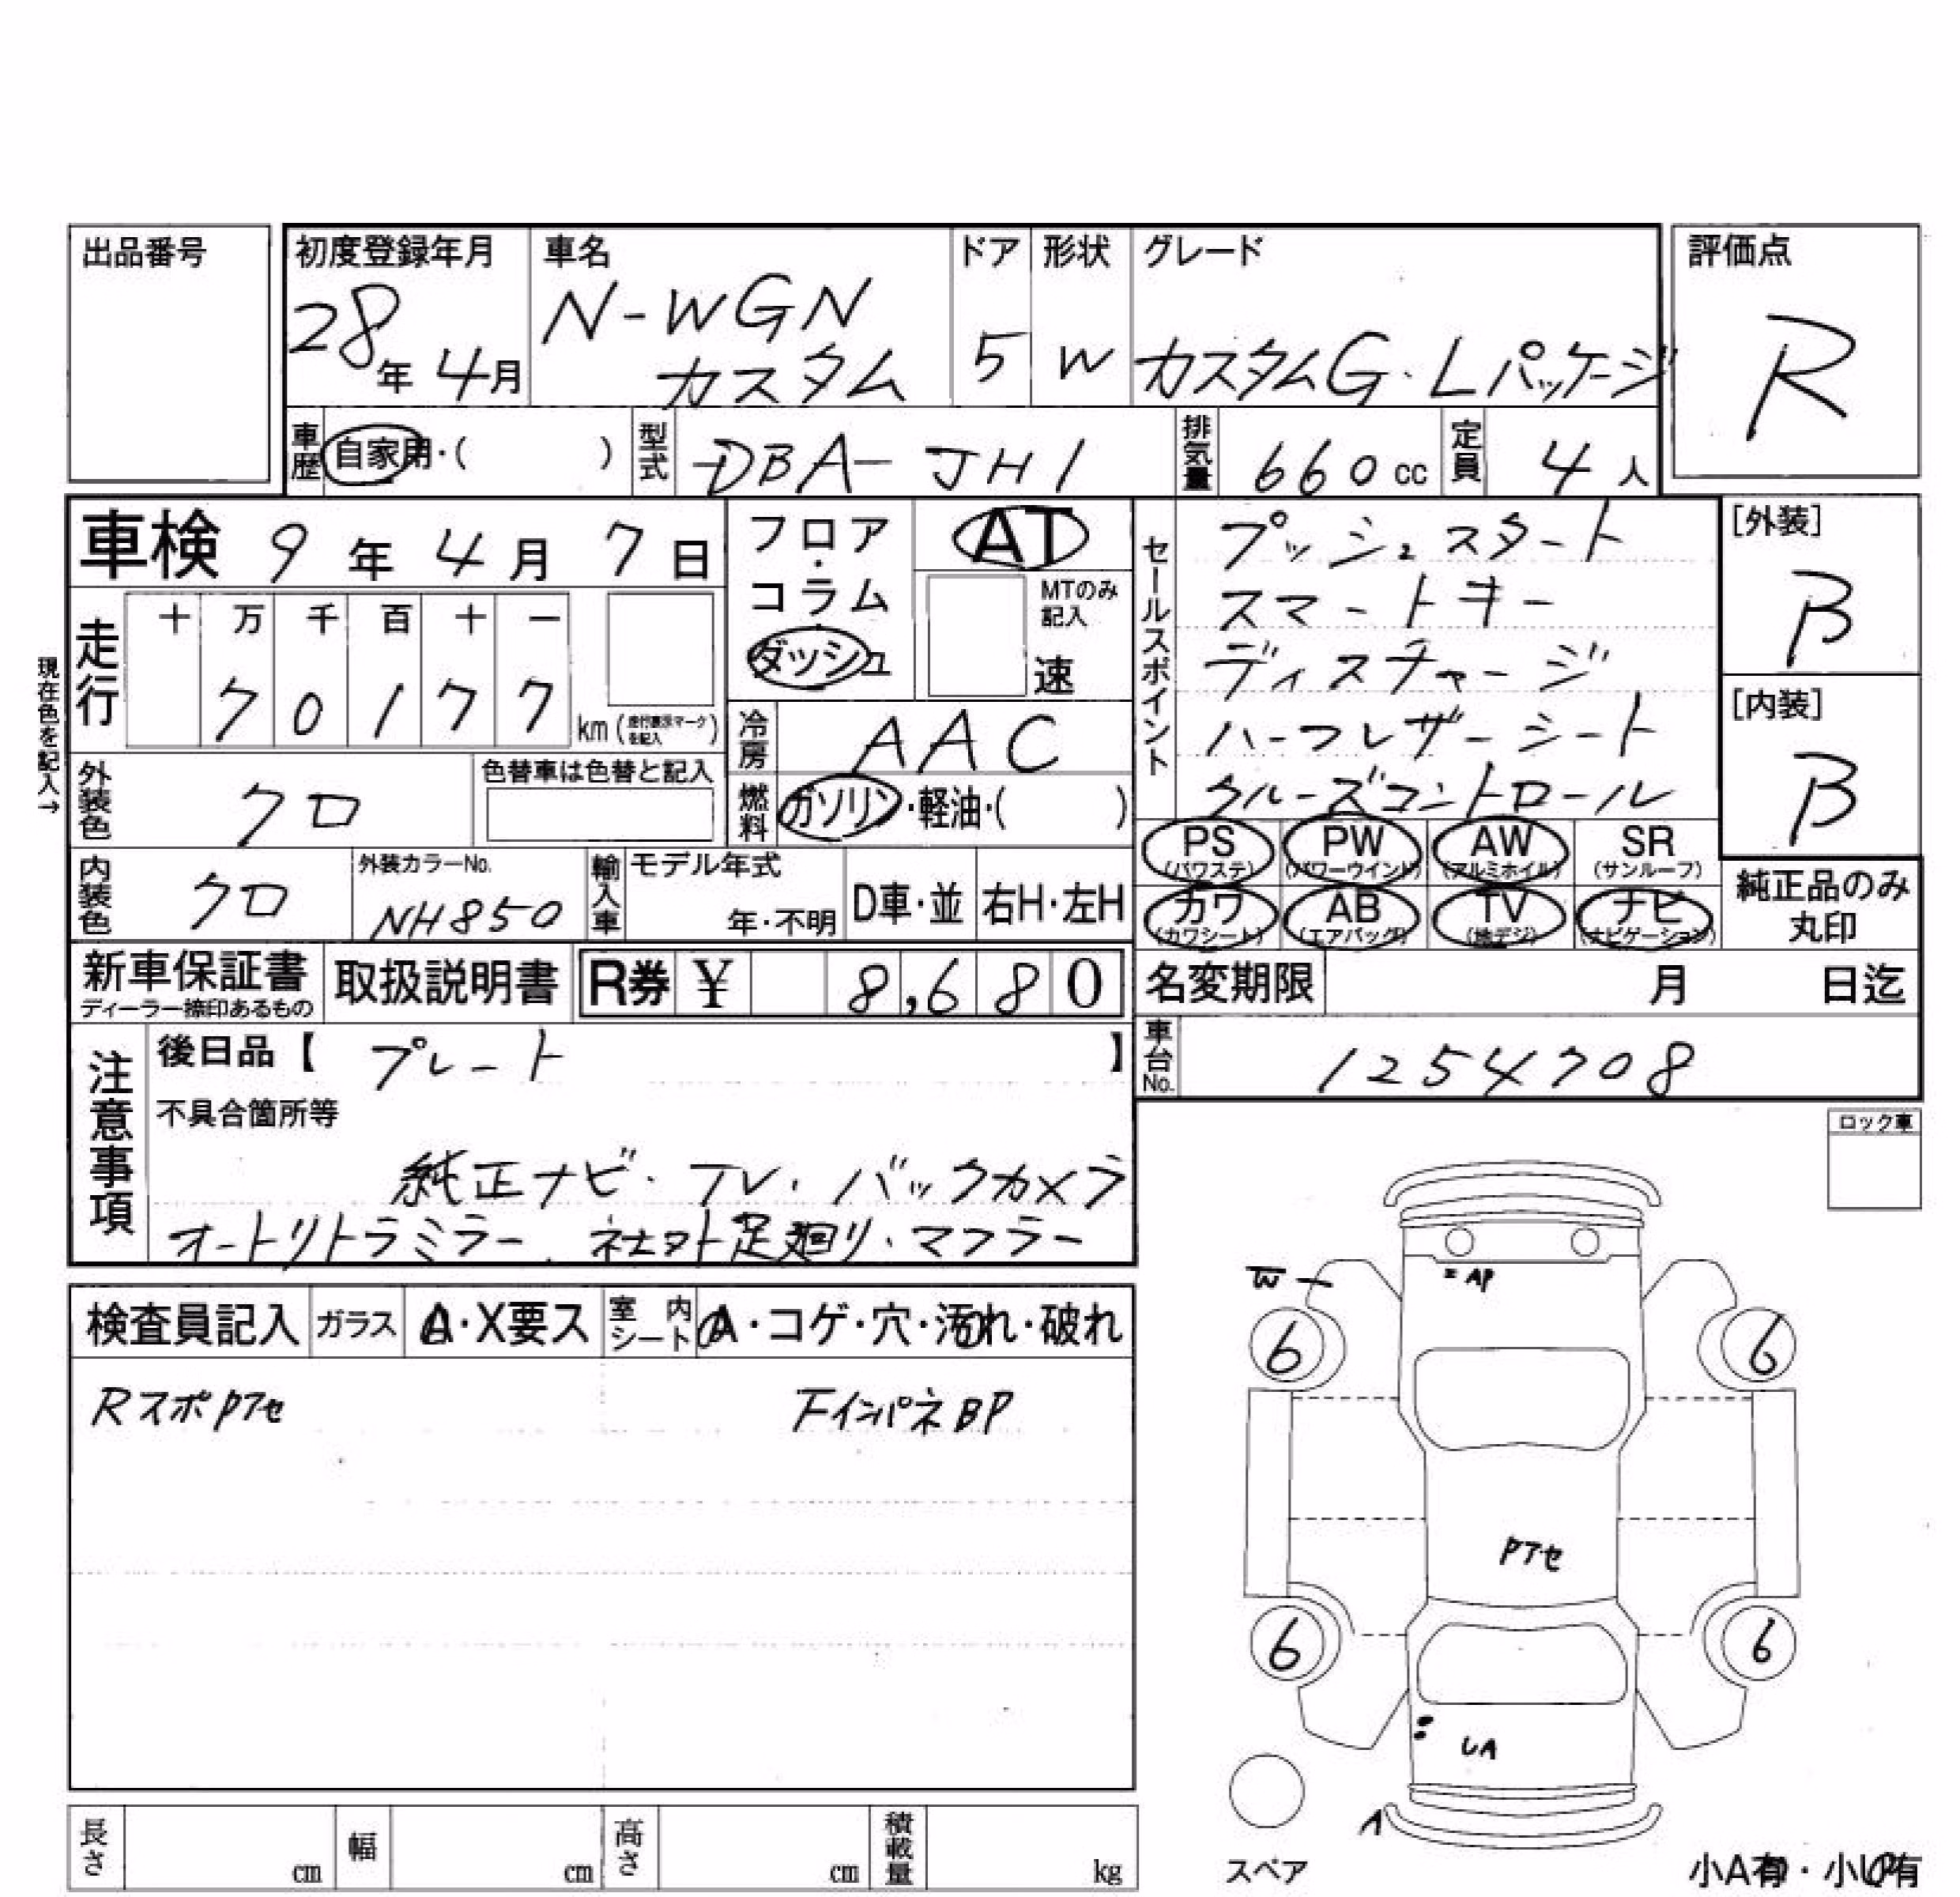 出品番号
初度登録年月 車名 ドア 形状 グレード 評価点
28年 4月 N-WGN カスタム 5 W カスタムG・Lパッケージ R
車歴 自家用・( ) 型式 DBA-JH1 排気量 660cc 定員 4人
車検 9年 4月 7日
フロア・コラム ダッシュ
AT
MTのみ記入
速
セールスポイント
プッシュスタート
スマートキー
ディスチャージ
ハーフレザーシート
クルーズコントロール
[外装]
B
[内装]
B
現在色を記入→
走行 十 万 千 百 十 一
7 0 1 7 7 km (走行表示マークを記入)
冷房 AAC
燃料 ガソリン・軽油・( )
外装色 クロ 色替車は色替と記入
内装色 クロ 外装カラーNo. NH850
輸入車 モデル年式 年・不明 D車・並 右H・左H
PS (パワステ) PW (パワーウインド) AW (アルミホイル) SR (サンルーフ)
カワ (カワシート) AB (エアバッグ) TV (地デジ) ナビ (ナビゲーション)
純正品のみ丸印
新車保証書 ディーラー捺印あるもの 取扱説明書 R券 ¥ 8,680
名変期限 月 日迄
車台No. 1254708
注意事項
後日品【 プレート 】
不具合箇所等
純正ナビ・TV・バックカメラ
オートリトラミラー 足廻り・マフラー
ロック車
検査員記入 ガラス A・X要ス 室内シート A・コゲ・穴・汚れ・破れ
RスポPアセ FインパネBP
W AP
6 6
Pアセ
6 6
UA
A
スペア
小A有・小U有
長さ cm 幅 cm 高さ cm 積載量 kg